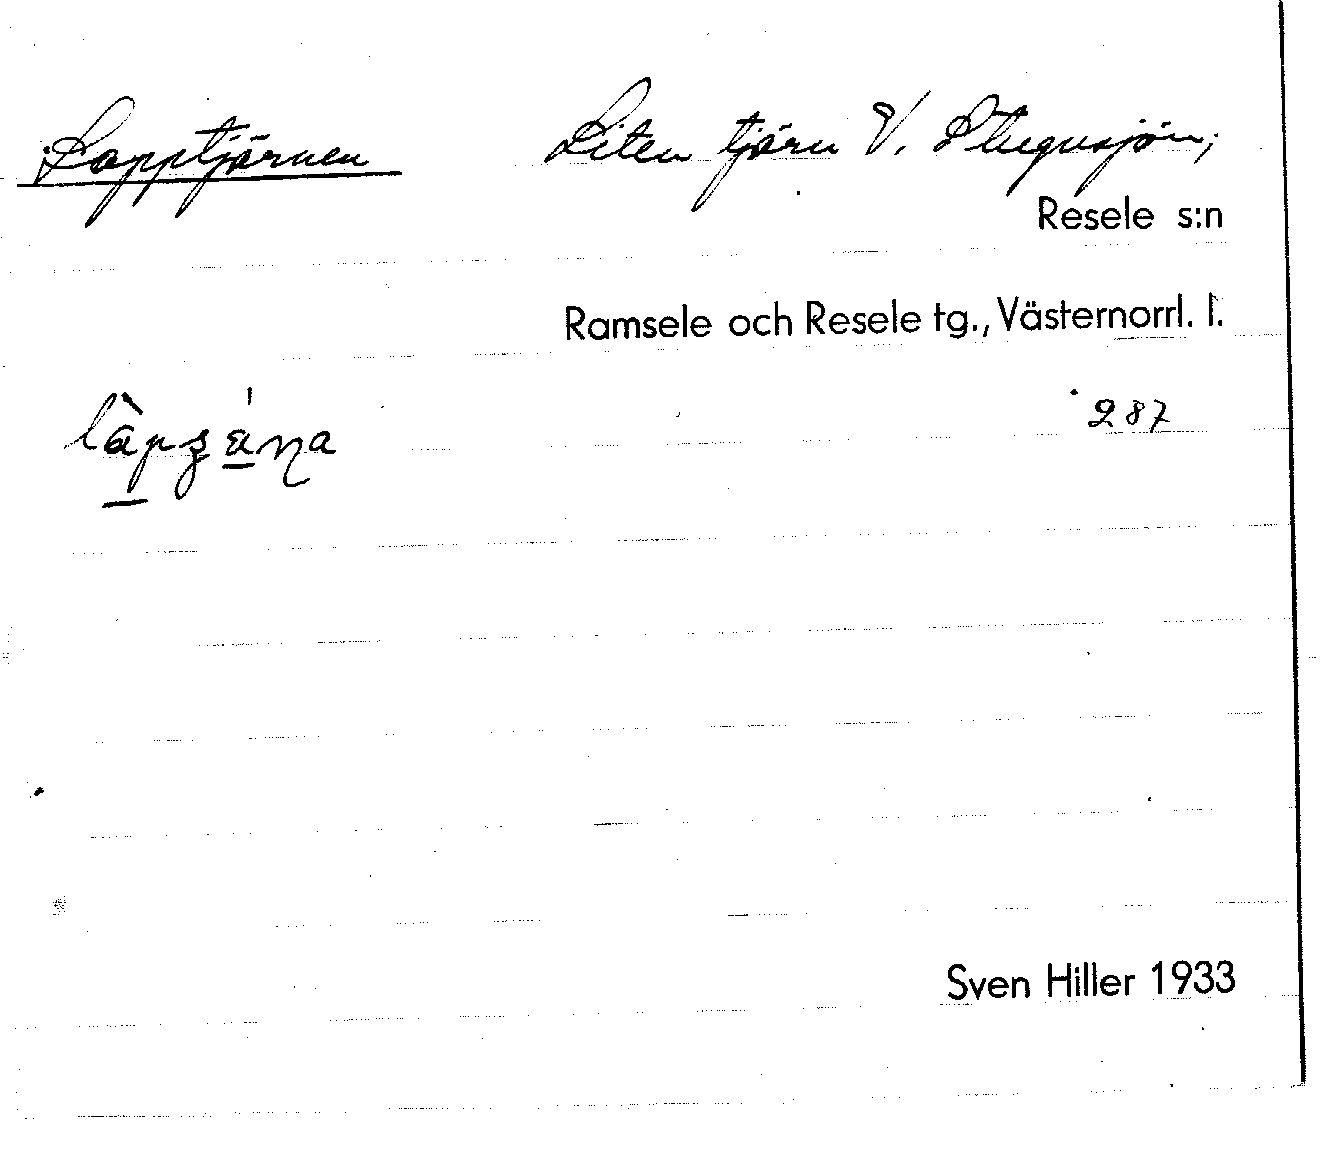 Lapptjärnen Liten tjärn V. Stugusjön;
Resele s:n
Ramsele och Resele tg., Västernorrl. l.
287
Sven Hiller 1933